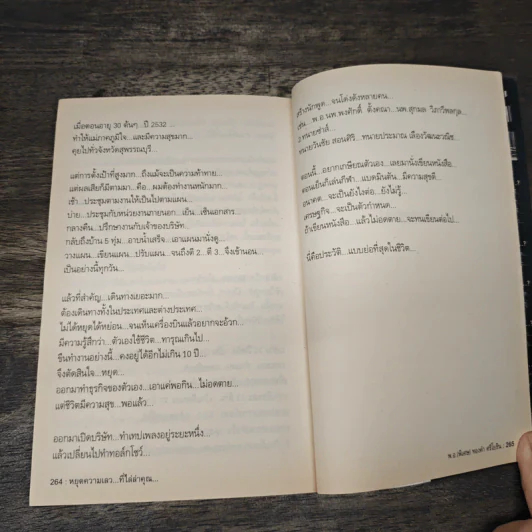 เมื่อตอนอายุ 30 ต้นๆ...ปี 2532 ...
ทำให้แม่ภาคภูมิใจ...และมีความสุขมาก...
คุยไปทั่วจังหวัดสุพรรณบุรี...
แต่การตั้งเป้าที่สูงมาก...ถึงแม้จะเป็นความท้าทาย...
แต่ผลเสียก็มีตามมา...คือ...ผมต้องทำงานหนักมาก...
เช้า...ประชุมตามงานให้เป็นไปตามแผน...
บ่าย...ประชุมกับหน่วยงานภายนอก...เย็น...เซ็นเอกสาร
กลางคืน...ปรึกษางานกับเจ้าของบริษัท...
กลับถึงบ้าน 5 ทุ่ม...อาบน้ำเสร็จ...เอาแผนมานั่งดู...
วางแผน...เขียนแผน...ปรับแผน...จนถึงตี 2...ตี 3...จึงเข้านอน...
เป็นอย่างนี้ทุกวัน...
แล้วที่สำคัญ...เดินทางเยอะมาก...
ต้องเดินทางทั้งในประเทศและต่างประเทศ...
ไม่ได้หยุดได้หย่อน...จนเห็นเครื่องบินแล้วอยากจะอ้วก...
มีความรู้สึกว่า...ตัวเองใช้ชีวิต...ทารุณเกินไป...
ขืนทำงานอย่างนี้...คงอยู่ได้อีกไม่เกิน 10 ปี...
จึงตัดสินใจ...หยุด...
ออกมาทำธุรกิจของตัวเอง...เอาแค่พอกิน...ไม่อดตาย...
แต่ชีวิตมีความสุข...พอแล้ว...
ออกมาเปิดบริษัท...ทำเทปเพลงอยู่ระยะหนึ่ง...
แล้วเปลี่ยนไปทำทอล์กโชว์...
264 : หยุดความเลว...ที่ไล่ล่าคุณ...
สร้างนักพูด...จนโด่งดังหลายคน...
เช่น...พ.อ.นพ.พงศ์ศักดิ์ ตั้งคณา...นพ.สุกมล วิภาวีพลกุล...
3 ทนายซ่าส์...
ทนายวันชัย สอนศิริ...ทนายประมาณ เลืองวัฒนะวณิช...
ตอนนี้...อยากเกษียณตัวเอง...เลยมานั่งเขียนหนังสือ...
ตอนเย็นก็เล่นกีฬา...แบดมินตัน...มีความสุขดี...
อนาคต...จะเป็นยังไงต่อ...ยังไม่รู้...
เศรษฐกิจ...จะเป็นตัวกำหนด...
ถ้าเขียนหนังสือ...แล้วไม่อดตาย...จะทนเขียนต่อไป...
นี่คือประวัติ...แบบย่อที่สุดในชีวิต...
265